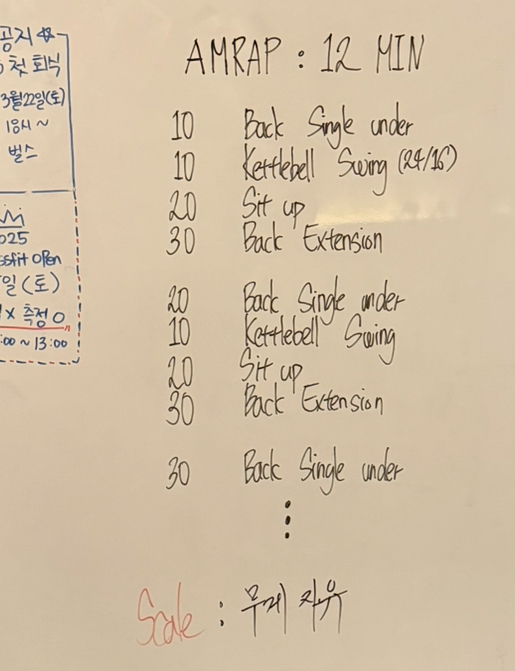 공지
첫 회식
3월22일(토)
18시~
벌스
2025
ssfit open
일(토)
x 측정 O
:00 ~ 13:00
AMRAP : 12 MIN
10 Back Single under
10 Kettlebell Swing (24/16)
20 Sit up
30 Back Extension
20 Back Single under
10 Kettlebell Swing
20 Sit up
30 Back Extension
30 Back Single under
⋮
Scale : 무게 자유